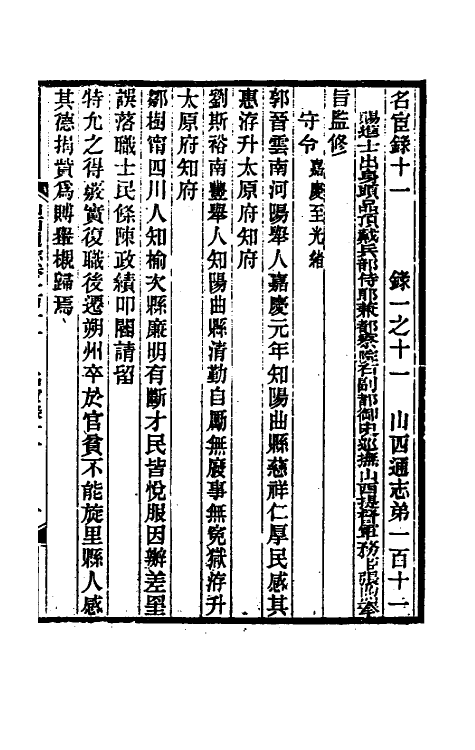 名宦錄十一　錄一之十一　山西通志弟一百十一
賜進士出身頭品頂戴兵部侍郎兼都察院右副都御史巡撫山西提督軍務
旨監修
守令 嘉慶至光緒
郭晉雲南河陽舉人嘉慶元年知陽曲縣慈祥仁厚民感其
惠洊升太原府知府
劉斯裕南豐舉人知陽曲縣清勤自勵無廢事無冤獄洊升
太原府知府
鄒樹甯四川人知榆次縣廉明有斷才民皆悅服因辦差罣
誤落職士民條陳政績叩閽請留
特允之得嚴實復職後遷朔州卒於官貧不能旋里縣人感
其德捐貲爲賻舉櫬歸焉